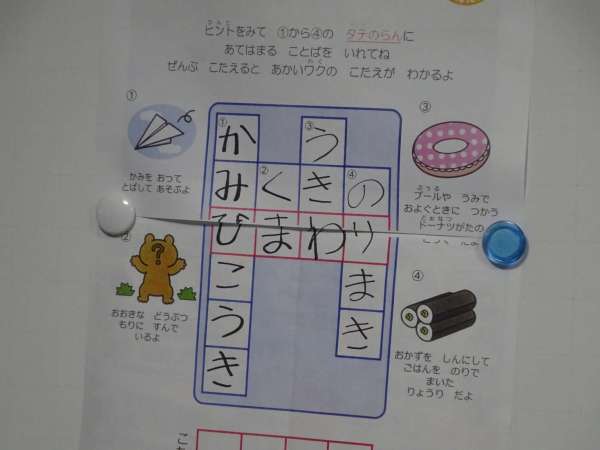 ヒントをみて ①から④の タテのらんに
あてはまる ことばを いれてね
ぜんぶ こたえると あかいワクの こたえが わかるよ
①
かみを おって
とばして あそぶよ
②
?
おおきな どうぶつ
もりに すんで
いるよ
①か ③う
み ②く き ④の
び ま わ り
こ ま
う き
き
③
プールや うみで
およぐときに つかう
ドーナツがたの
④
おかずを しんにして
ごはんを のりで
まいた
りょうり だよ
こ